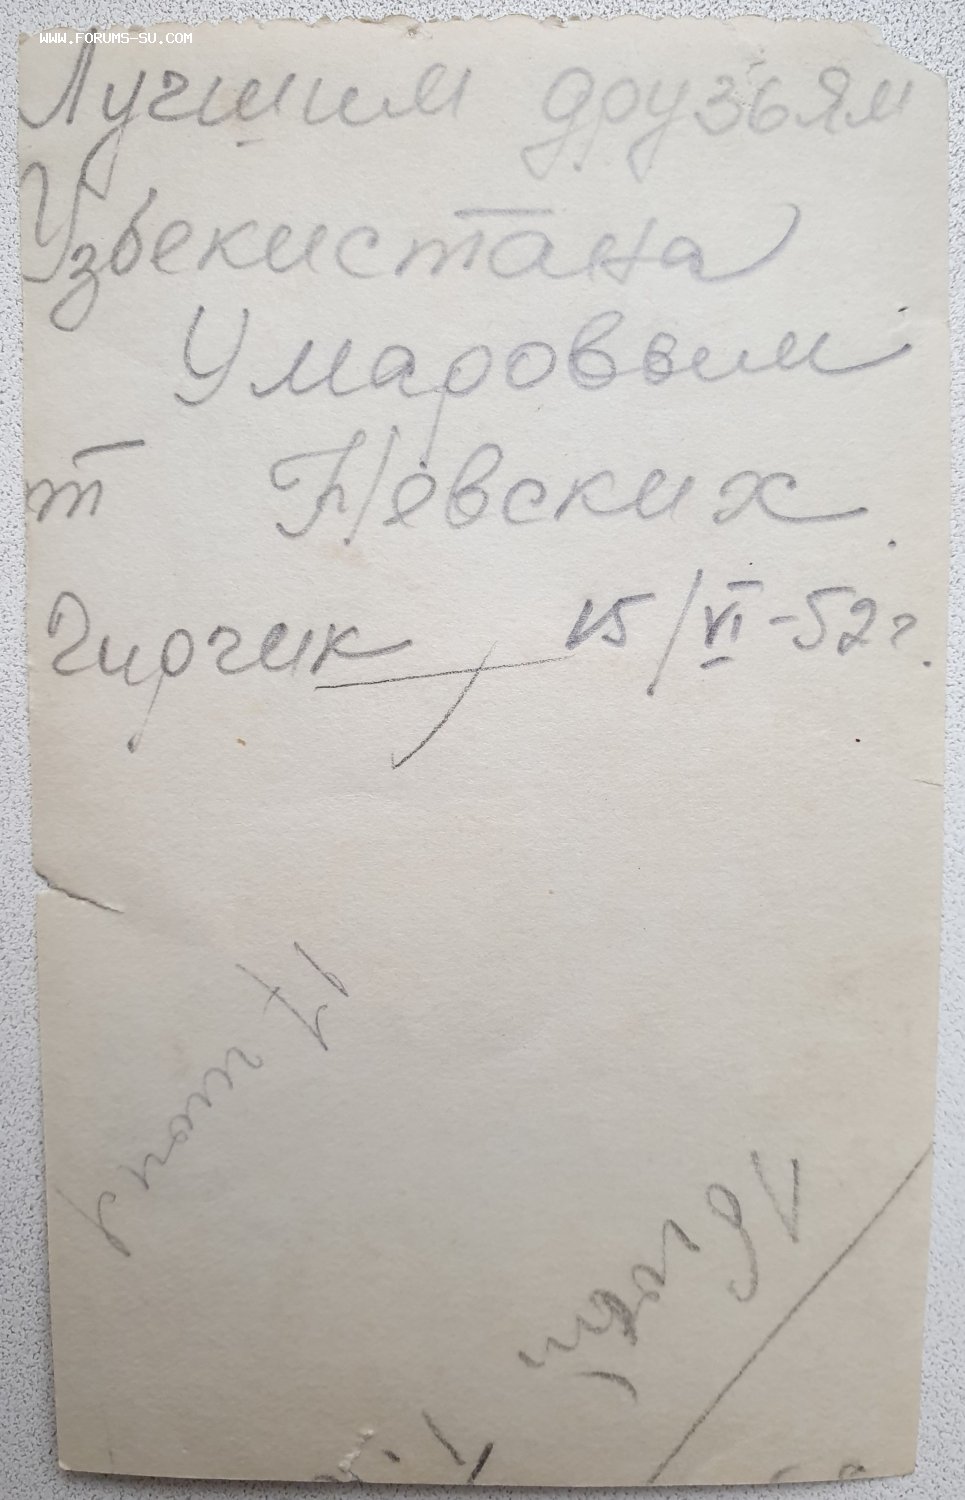 www.forums-su.com
Лучшим друзьям
Узбекистана
Умаровым
т Невских.
Чирчик 15/VI-52г.